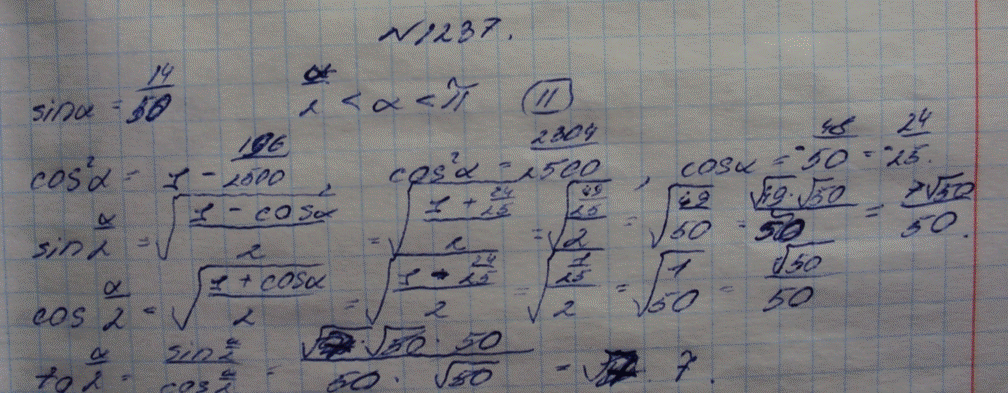 N1237.
sinα = 14/50   π/2 < α < π   (II)
cos²α = 1 - 196/2500   cos²α = 2304/2500, cosα = -48/50 = -24/25.
sin α/2 = √((1 - cosα)/2) = √((1 + 24/25)/2) = √((49/25)/2) = √(49/50) = (√49 · √50)/50 = 7√50/50.
cos α/2 = √((1 + cosα)/2) = √((1 - 24/25)/2) = √((1/25)/2) = √(1/50) = √50/50
tg α/2 = (sin α/2)/(cos α/2) = · √50 · 50/(50 · √50) = 7.